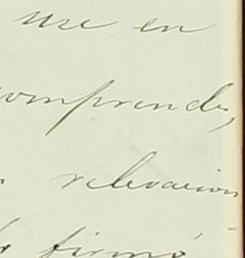 use en
comprende,
relevacion
firmó